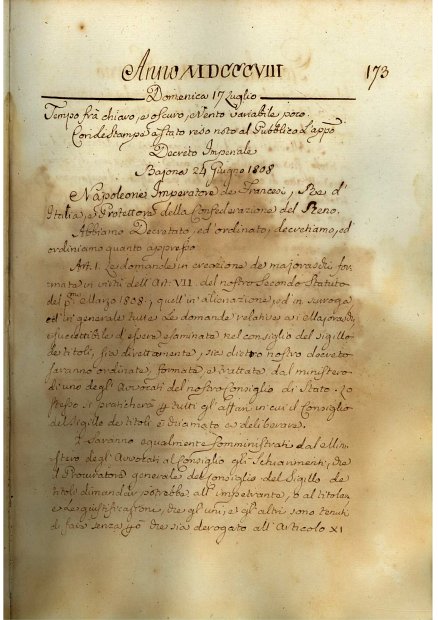 Anno MDCCCVIII 173
Domenica 17 Luglio
Tempo frà chiaro, e oscuro, Vento variabile poco.
Con le Stampe è stato reso noto al Pubblico l'appo
Decreto Imperiale
Bajona 24 Giugno 1808
Napoleone Imperatore de Francesi, Re d'
Italia, e Protettore della Confederazione del Reno.
Abbiamo Decretato, ed ordinato, decretiamo, ed
ordiniamo quanto appresso
Art. I. Le domande in creazione de majoraschi for
mata in virtù dell'Art. VII. del nostro Secondo Statuto
del pmo Marzo 1808; quell'in alienazione, ed in surroga
ed in generale tutte le domande relative ai Majoraschi
suscettibile d'essere esaminate nel consiglio del sigillo
de titoli, sia direttamente, sia dietro nostro decreto
saranno ordinate, formate e trattate dal ministero
di uno degl'Avvocati del nostro Consiglio di Stato. Lo
stesso si praticherà per tutti gl'affari in cui il Consiglio
del Sigillo de titoli è chiamato a deliberare.
2 saranno equalmente somministrati dal Mini
stero degl'Avvocati al Consiglio gli schiarimenti, che
il Procuratore generale del Consiglio del Sigillo de
titoli dimandar potrebbe all'impetrante, o al titolare
e le giustificazioni, che gl'uni, e gl'altri sono tenuti
di fare senza però che sia derogato all'Articolo XI